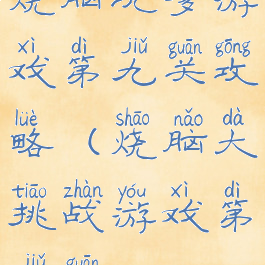 xì dì jiǔ guān gōng
戏第九关攻
lüè shāo nǎo dà
略(烧脑大
tiāo zhàn yóu xì dì
挑战游戏第
jiǔ guān